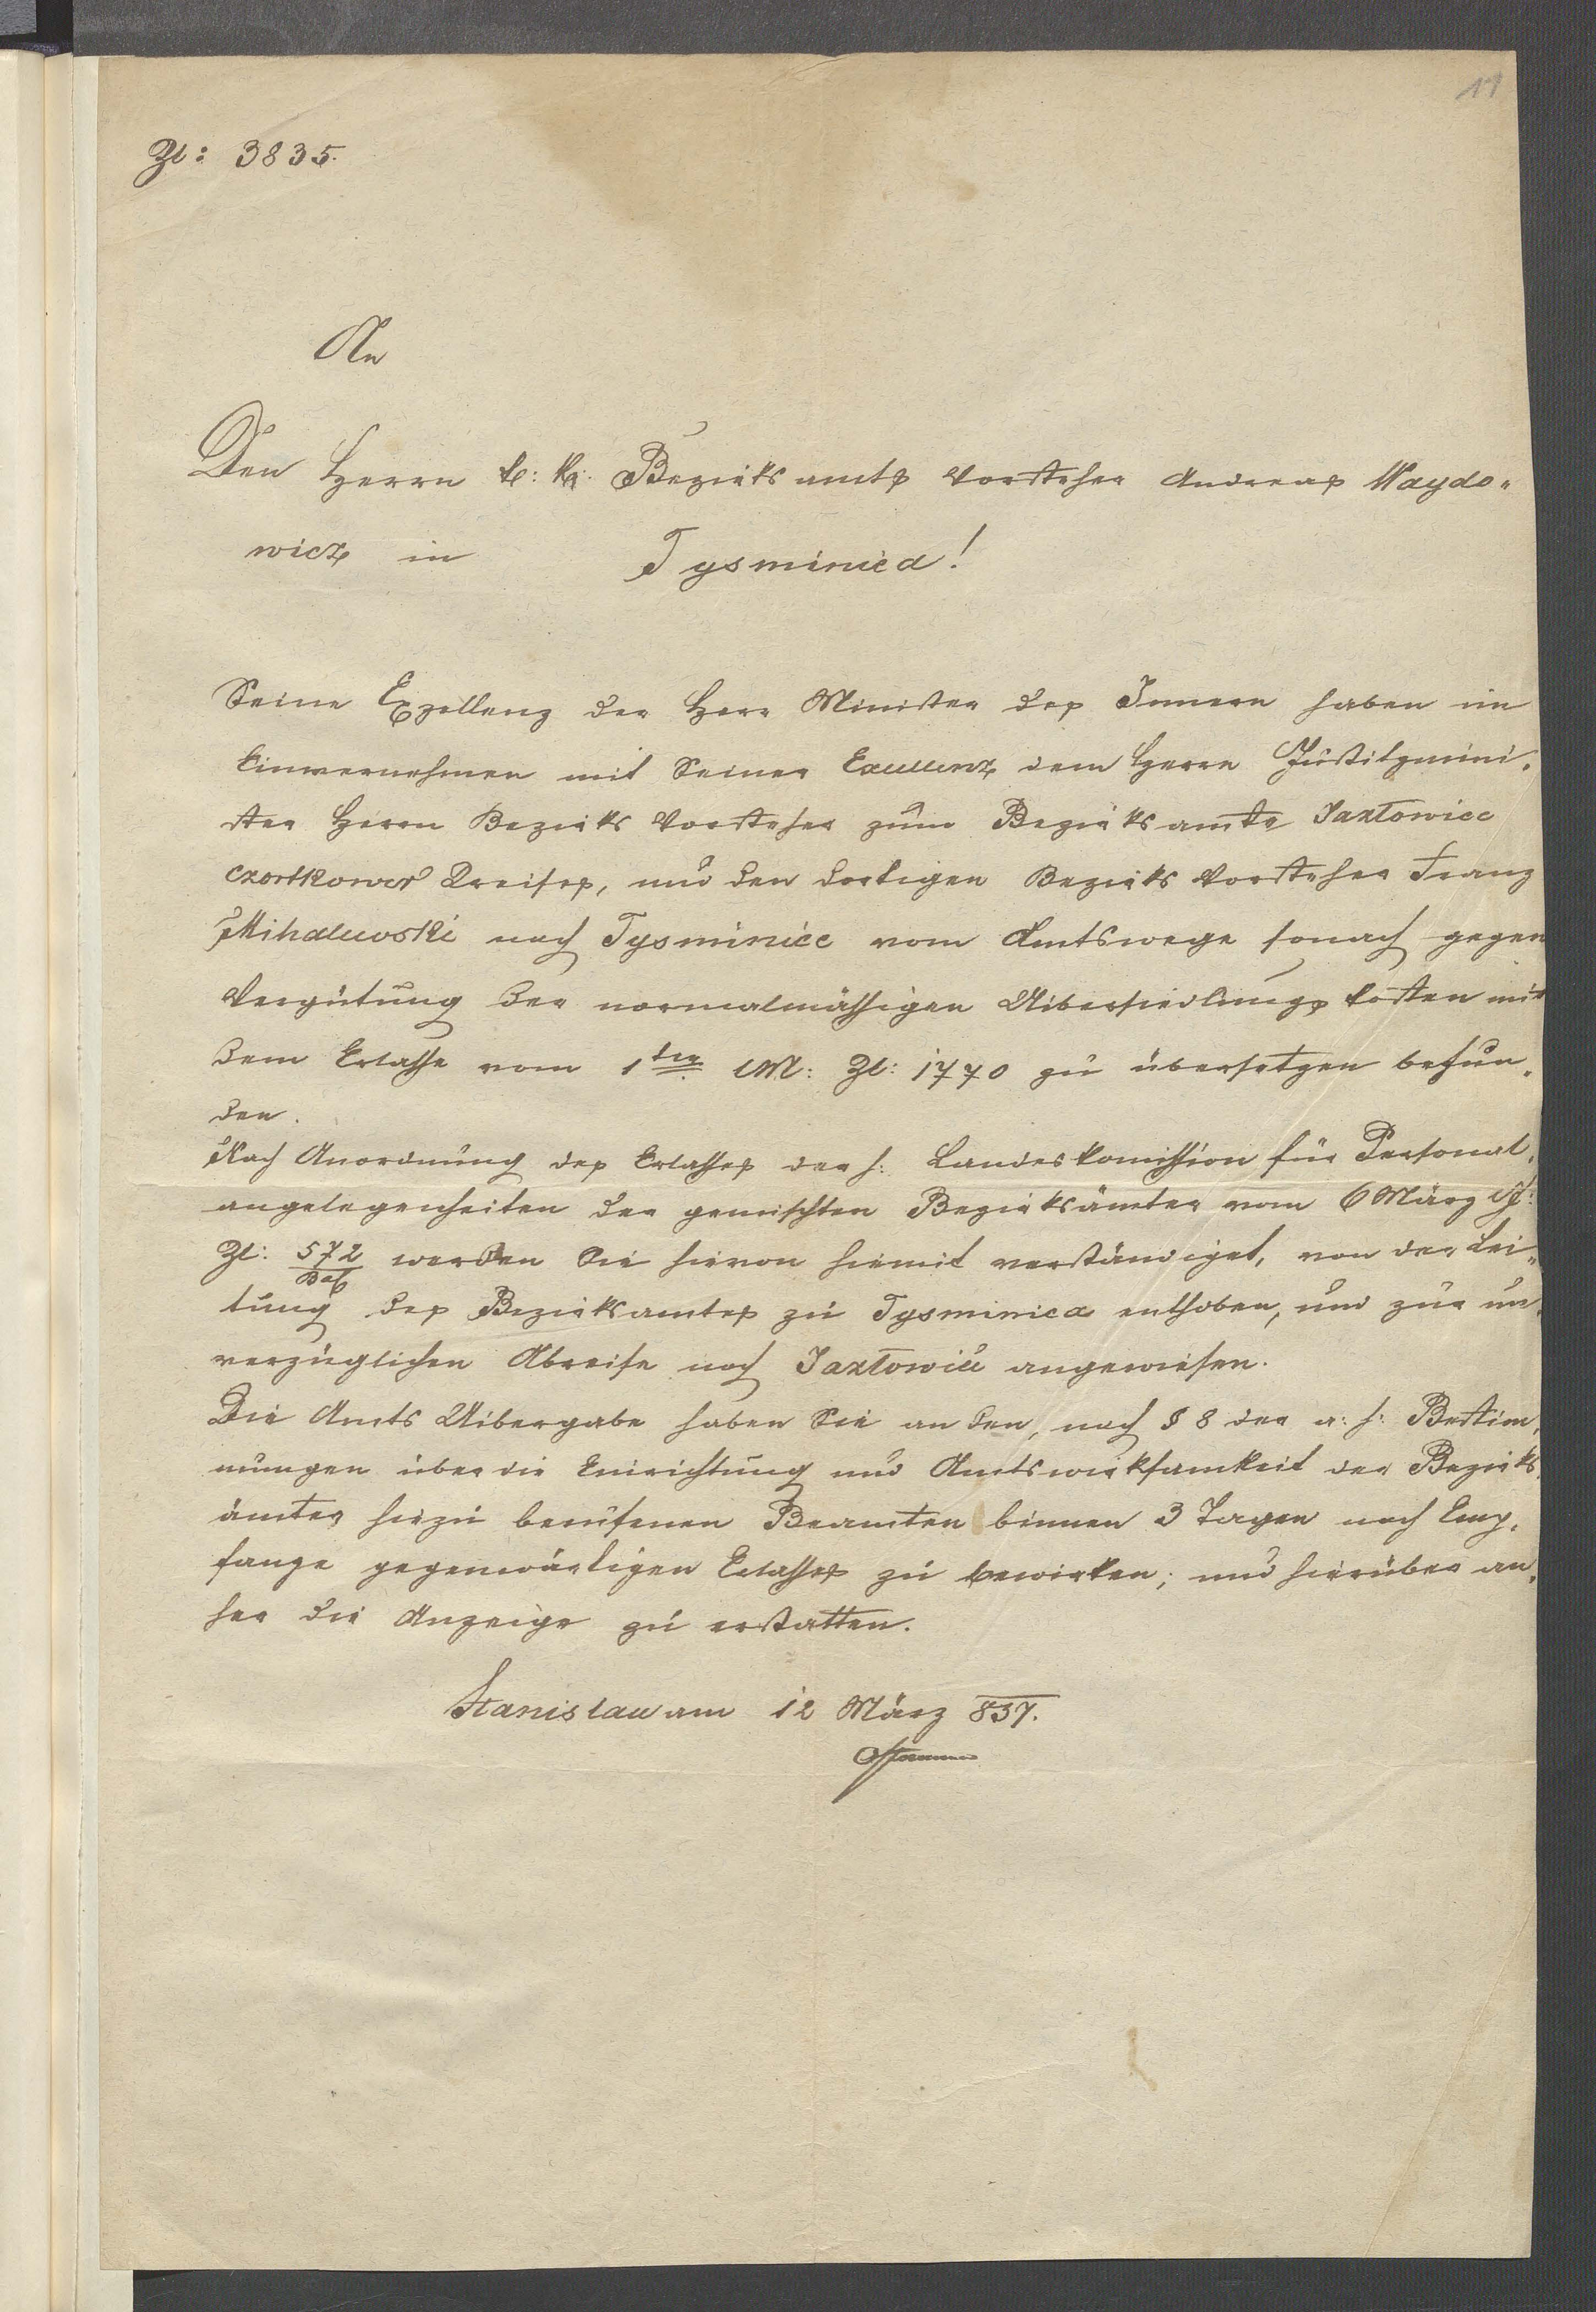 11
Zl: 3835.
An
Den Herrn k: k: Bezirksamts Vorsteher Andreas Maydo-
wicz in Tysminica!
Seine Exzellenz der Herr Minister des Innern haben im
Einvernehmen mit Seiner Excellenz dem Herrn Justitzmini-
ster Herrn Bezirks Vorsteher zum Bezirksamte Jaxłowice
Czortkower Kreises, und den dortigen Bezirks Vorsteher Franz
Mihalewski nach Tysminice vom Amtswege sonach gegen
Vergütung der normalmäßigen Uibersiedlungs kosten mit
dem Erlasse vom 1ten l M: Zl: 1770 zu übersetzen befun-
den.
Nach Anordnung des Erlasses der h: Landeskomission für Personal-
angelegenheiten der gemischten Bezirksämter vom 6 März l J:
Zl: 572 werden Sie hievon hiemit verständiget, von der Lei-
tung des Bezirksamtes zu Tysminica enthoben, und zur un-
verzüglichen Abreise nach Jaxłowice angewiesen.
Die Amts Uibergabe haben Sie an den, nach § 8 der a: h: Bestim-
mungen über die Einrichtung und Amtswirksamkeit der Bezirks-
ämter hiezu berufenen Beamten binnen 3 Tagen nach Emp-
fange gegenwärtigen Erlasses zu bewirken; und hierüber an-
her die Anzeige zu erstatten.
Stanislau am 12 März 857.